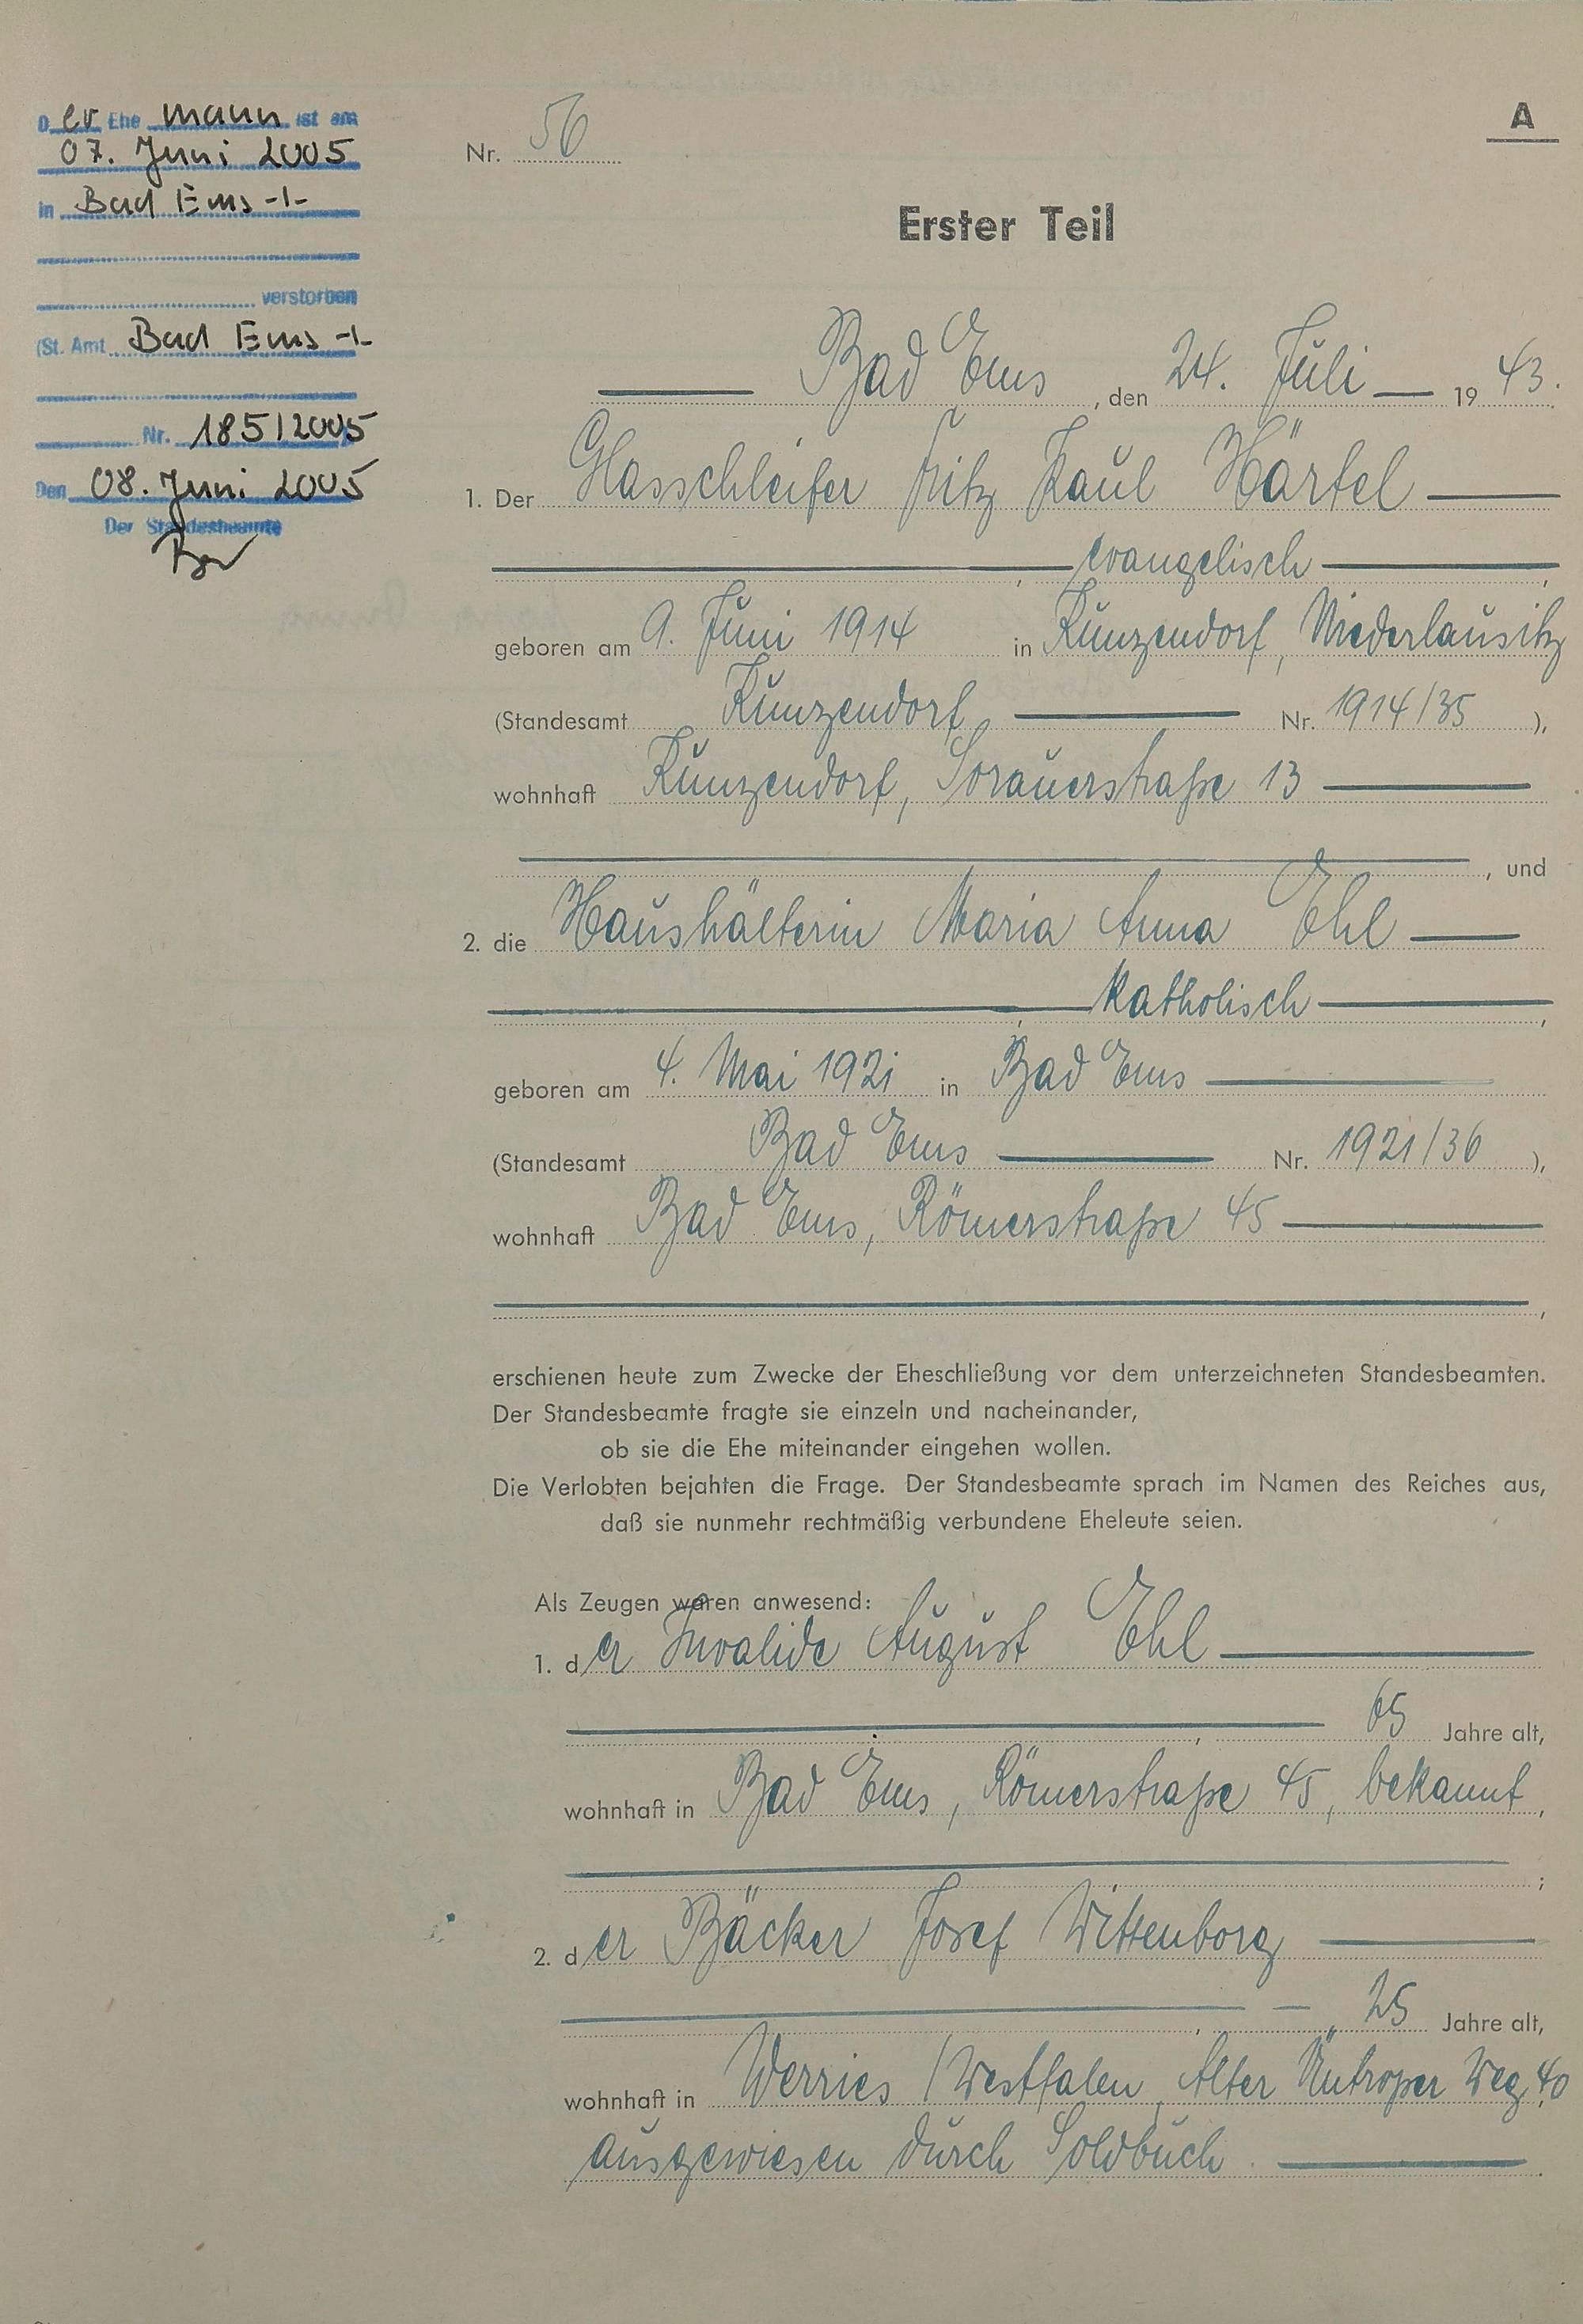 Der Ehe mann ist am
07. Juni 2005
in Bad Ems -1-
verstorben
(St. Amt Bad Ems -1-
Nr. 185/2005
Den 08. Juni 2005
Der Standesbeamte
Nr. 56
A
Erster Teil
Bad Ems, den 24. Juli 1943.
1. Der Glasschleifer Fritz Paul Härtel
, evangelisch,
geboren am 9. Juni 1914 in Kunzendorf, Niederlausitz
(Standesamt Kunzendorf Nr. 1914/35),
wohnhaft Kunzendorf, Sorauerstraße 13
, und
2. die Haushälterin Maria Anna Ehl
, katholisch,
geboren am 4. Mai 1921 in Bad Ems
(Standesamt Bad Ems Nr. 1921/36),
wohnhaft Bad Ems, Römerstraße 45
,
erschienen heute zum Zwecke der Eheschließung vor dem unterzeichneten Standesbeamten.
Der Standesbeamte fragte sie einzeln und nacheinander,
ob sie die Ehe miteinander eingehen wollen.
Die Verlobten bejahten die Frage. Der Standesbeamte sprach im Namen des Reiches aus,
daß sie nunmehr rechtmäßig verbundene Eheleute seien.
Als Zeugen waren anwesend:
1. der Invalide August Ehl
, 65 Jahre alt,
wohnhaft in Bad Ems, Römerstraße 45, bekannt,
;
2. der Bäcker Josef Wittenborg
, 25 Jahre alt,
wohnhaft in Werries /Westfalen, Alter Üntroper Weg 40,
ausgewiesen durch Soldbuch.